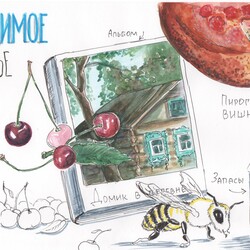 ИМОЕ
ОЕ
Альбом
Пирог
вишн
Домик в
Запасы